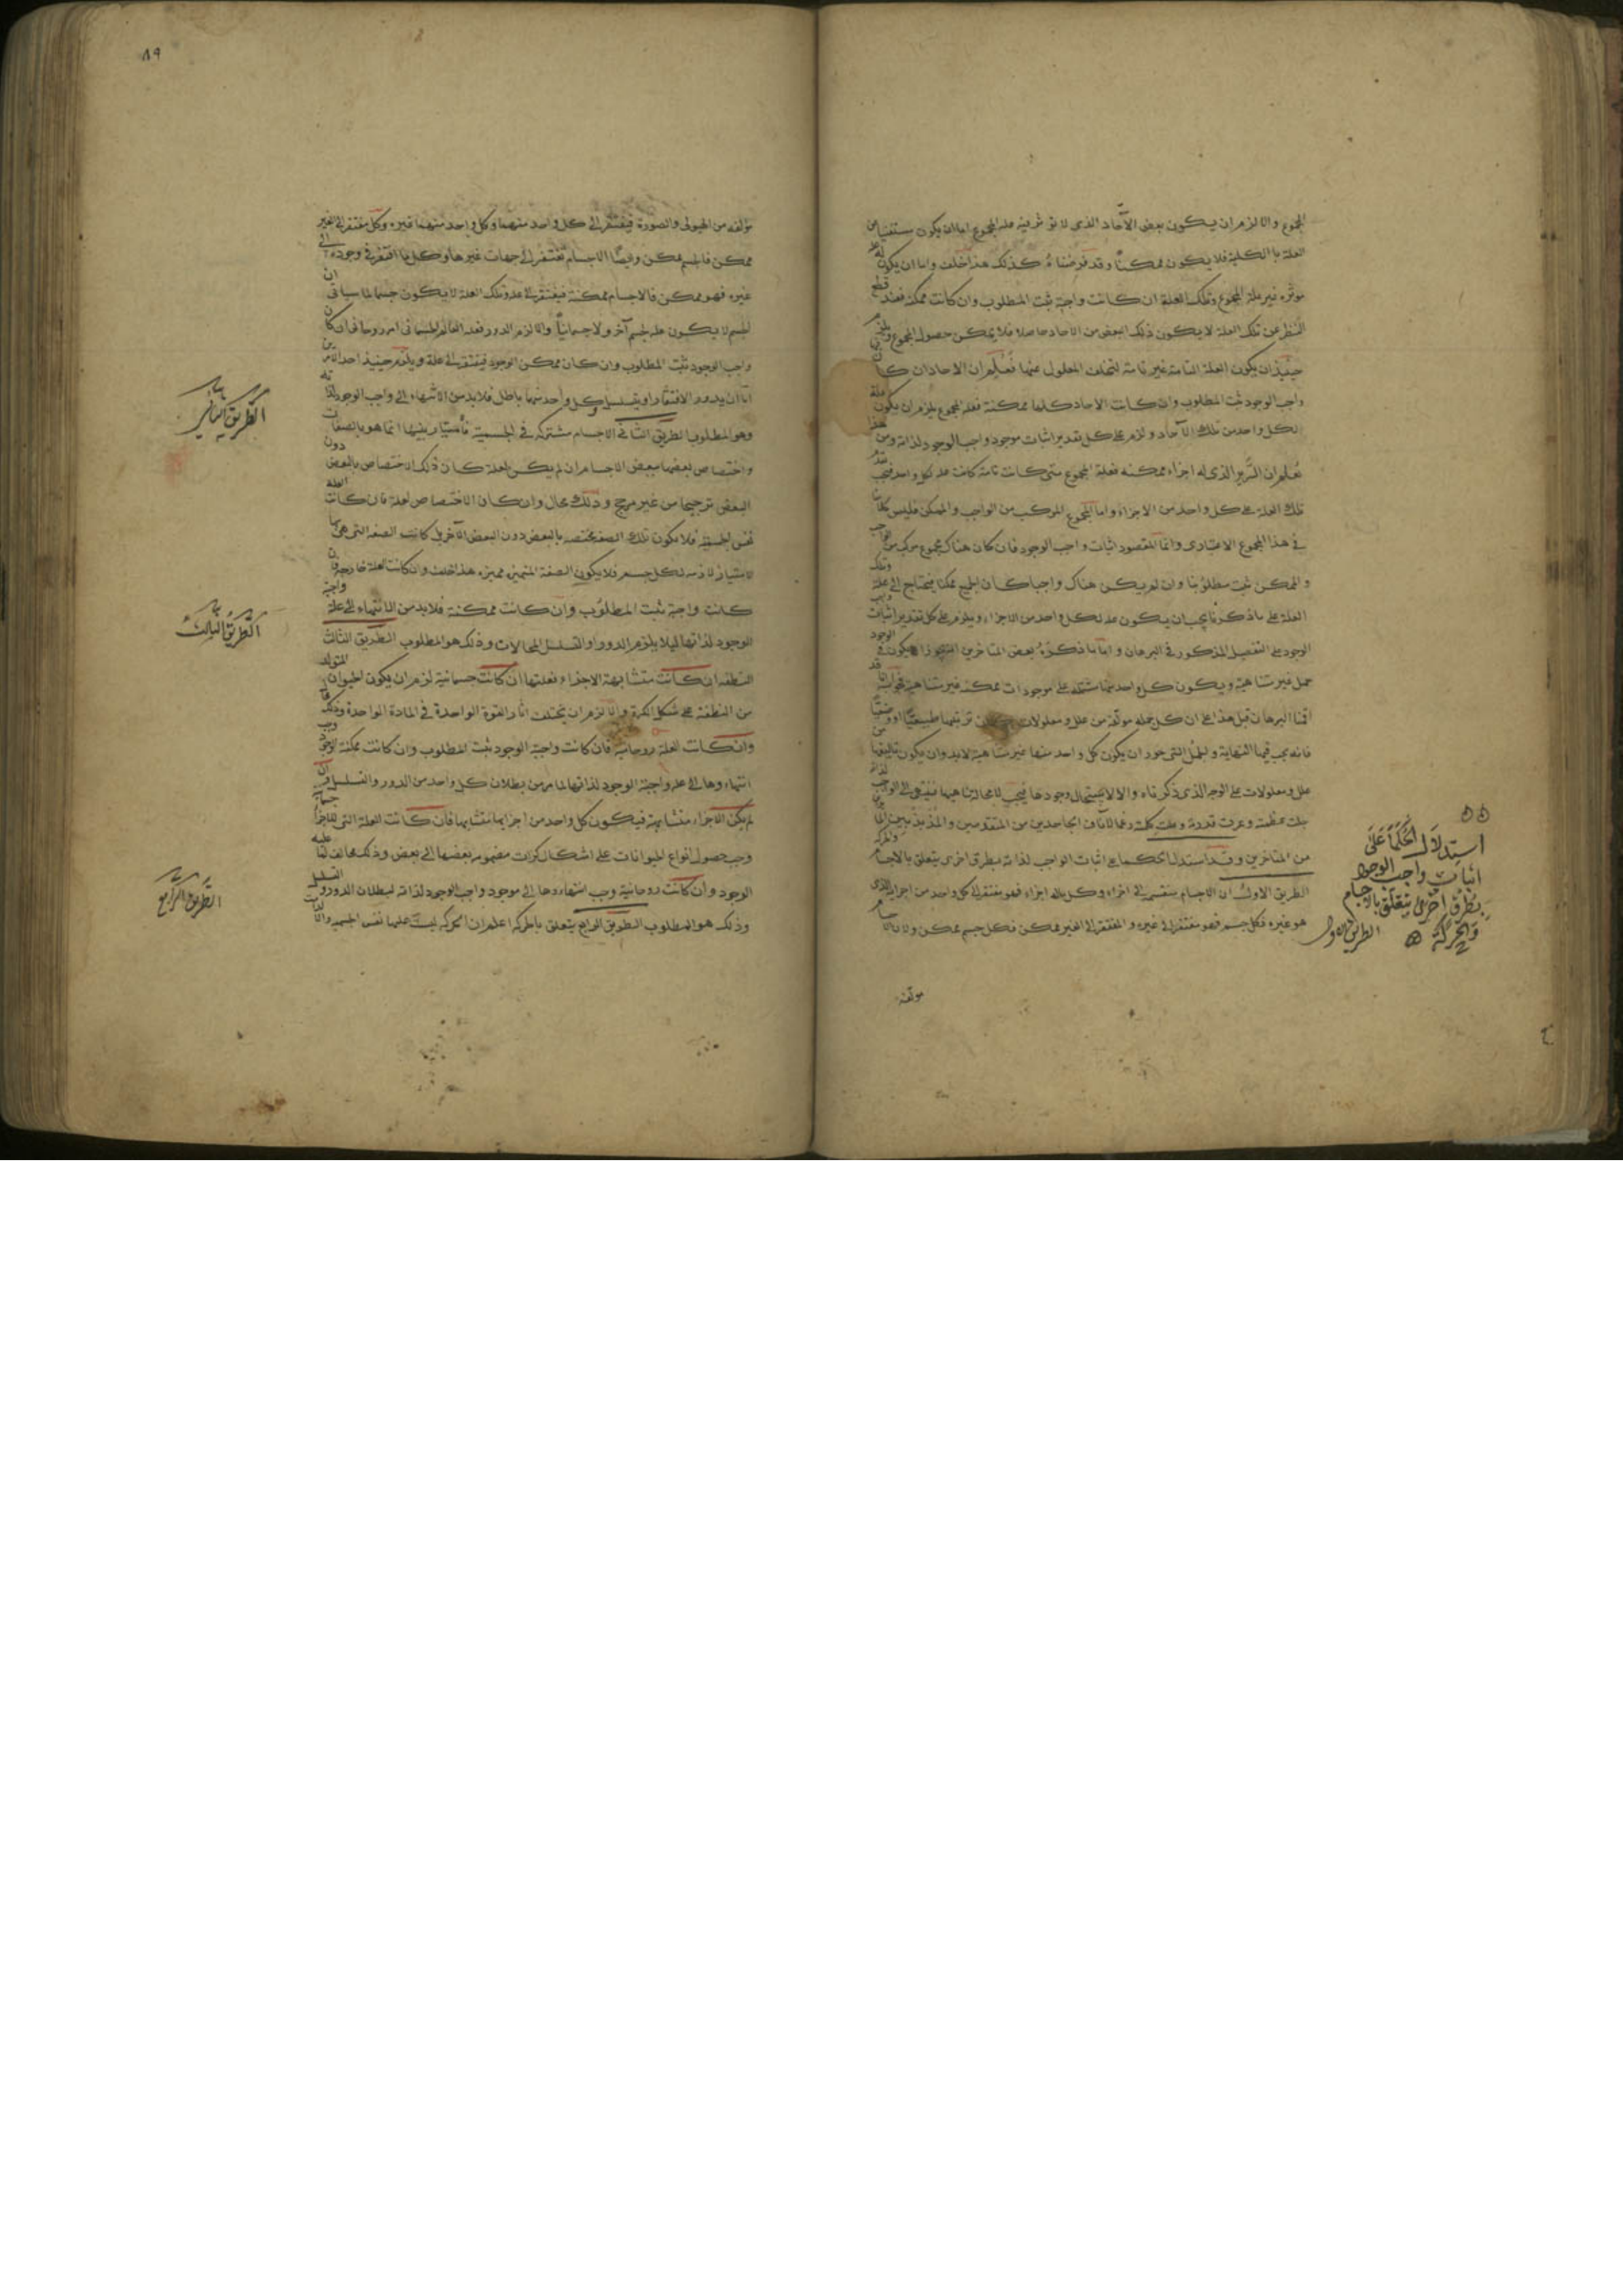 المجموع والا لزم ان يكون بعض الآحاد الذى لا تؤثر فيه علة المجموع اما ان يكون مستغنيا عن
العلة بالكلية فلا يكون ممكنا وقد فرضناه كذلك هذا خلف واما ان يكون له علة
مؤثره غير علة المجموع وتلك العلة ان كانت واجبة ثبت المطلوب وان كانت ممكنة فعند قطع
النظر عن تلك العلة لا يكون ذلك البعض من الاحاد حاصلا فلا يمكن حصول المجموع ويلزم
حينئذ ان يكون العلة التامة غير تامة لتخلف المعلول عنها فعلم ان الاحاد ان كان
واجب الوجود ثبت المطلوب وان كانت الاحاد كلها ممكنة فعلة المجموع يلزم ان يكون علة
لكل واحد من تلك الآحاد ولزم على كل تقدير اثبات موجود واجب الوجود لذاته ومن هذا
تعلم ان الذى له اجزاء ممكنه فعلة المجموع متى كانت تامة كانت علة لكل واحد فيجب تقدم
تلك العلة على كل واحد من الاجزاء واما المجموع المركب من الواجب والممكن فليس كلامنا
فى هذا المجموع الاعتبارى وانما المقصود اثبات واجب الوجود فان كان هناك مجموع مركب من الواجب
والممكن ثبت مطلوبنا وان لم يكن هناك واجبا كان الجميع ممكنا فيحتاج الى علة وتلك
العلة على ما ذكرنا يجب ان يكون علة لكل واحد من الاجزاء ويلزم على كل تقدير اثبات واجب
الوجود على التفصيل المذكور فى البرهان واما ما ذكره بعض المتأخرين يكون فى الوجود
جمل غير متناهية ويكون كل واحد منها مشتمله على موجودات ممكنه غير متناهية فجوابه انا قد
اقمنا البرهان قبل هذا على ان كل جملة مؤلفه من علل ومعلولات ترتيبها طبيعيا او وضعيا
فانه يجب فيها النهاية والجمل التى جوز ان يكون كل واحد منها غير متناهية لابد وان يكون تاليفها من
علل ومعلولات على الوجه الذى ذكرناه والا لاستحال وجودها فيجب لا محالة تناهيها فينتهى الى الواجب لذاته
جلت عظمته وعزت قدرته وعلت كلمته رغما لآناف الجاحدين من المتقدمين والمذبذبين
من المتاخرين وقد استدل الحكما على اثبات الواجب لذاته بطرق اخرى يتعلق بالاجسام والحركة
الطريق الاول ان الاجسام منقسم الى اجزاء وكل ماله اجزاء فهو مفتقر الى كل واحد من اجزايه الذى
هو غيره فكل جسم فهو مفتقر الى غيره والمفتقر الى الغير ممكن فكل جسم ممكن ولان الاجسام
مؤلفة
استدلال الحكما على
اثبات واجب الوجود
بطرق اخرى يتعلق بالاجسام
والحركة
الطريق الاول
٨٩
مؤلفه من الهيولى والصورة فيفتقر الى كل واحد منهما وكل واحد منهما غيره وكل مفتقر الى الغير
ممكن فالجسم ممكن وايضا الاجسام تفتقر الى جهات غيرها وكل ما افتقر فى وجوده الى
غيره فهو ممكن فالاجسام ممكنة فيفتقر الى علة وتلك العلة لا يكون جسما لما سياتى ان
الجسم لا يكون علة لجسم آخر ولا جسمانيا والا لزم الدور فعلة العالم الجسمانى امر روحانى فان كان
واجب الوجود ثبت المطلوب وان كان ممكن الوجود فيفتقر الى علة ويلزم حينئذ احد الامرين
اما ان يدور الافتقار او يتسلسل وكل واحد منهما باطل فلابد من الانتهاء الى واجب الوجود لذاته
وهو المطلوب الطريق الثانى الاجسام مشتركة فى الجسمية فامتياز بينها انما هو بالصفات
واختصاص بعضها ببعض الاجسام ان لم يكن لعلة كان ذلك الاختصاص بالبعض دون
البعض ترجيحا من غير مرجح وذلك محال وان كان الاختصاص لعلة فان كانت العلة
نفس الجسمية فلا يكون تلك الصفة مختصه بالبعض دون البعض الآخر بل كانت الصفة التى هى
لامتياز لازمه لكل جسم فلا يكون الصفة المميزه مميزه هذا خلف وان كانت العلة خارجة فان
كانت واجبة ثبت المطلوب وان كانت ممكنة فلابد من الانتهاء الى علة واجبة
الوجود لذاتها ليلا يلزم الدور او التسلسل المحالات وذلك هو المطلوب الطريق الثالث
النطفه ان كانت متشابهة الاجزاء فعلتها ان كانت جسمانية لزم ان يكون الحيوان المتولد
من النطفة على شكل الكرة والا لزم ان يختلف اثار القوة الواحدة فى المادة الواحدة وذلك
وان كانت العلة روحانية فان كانت واجبة الوجود ثبت المطلوب وان كانت ممكنة الوجود وجب
انتهاؤها الى علة واجبة الوجود لذاتها لما مر من بطلان كل واحد من الدور والتسلسل وان
لم يكن الاجزاء متشابهة فيكون كل واحد من اجزايها متشابها فان كانت العلة التى للاجزاء جسمانية
وجب حصول انواع الحيوانات على اشكال كرات مضموم بعضها الى بعض وذلك مخالف لما عليه
الوجود وان كانت روحانية وجب انتهاءها الى موجود واجب الوجود لذاته لبطلان الدور والتسلسل
وذلك هو المطلوب الطريق الرابع يتعلق بالحركة اعلم ان الحركة ليست علتها نفس الجسم والا
الطريق الثانى
الطريق الثالث
الطريق الرابع